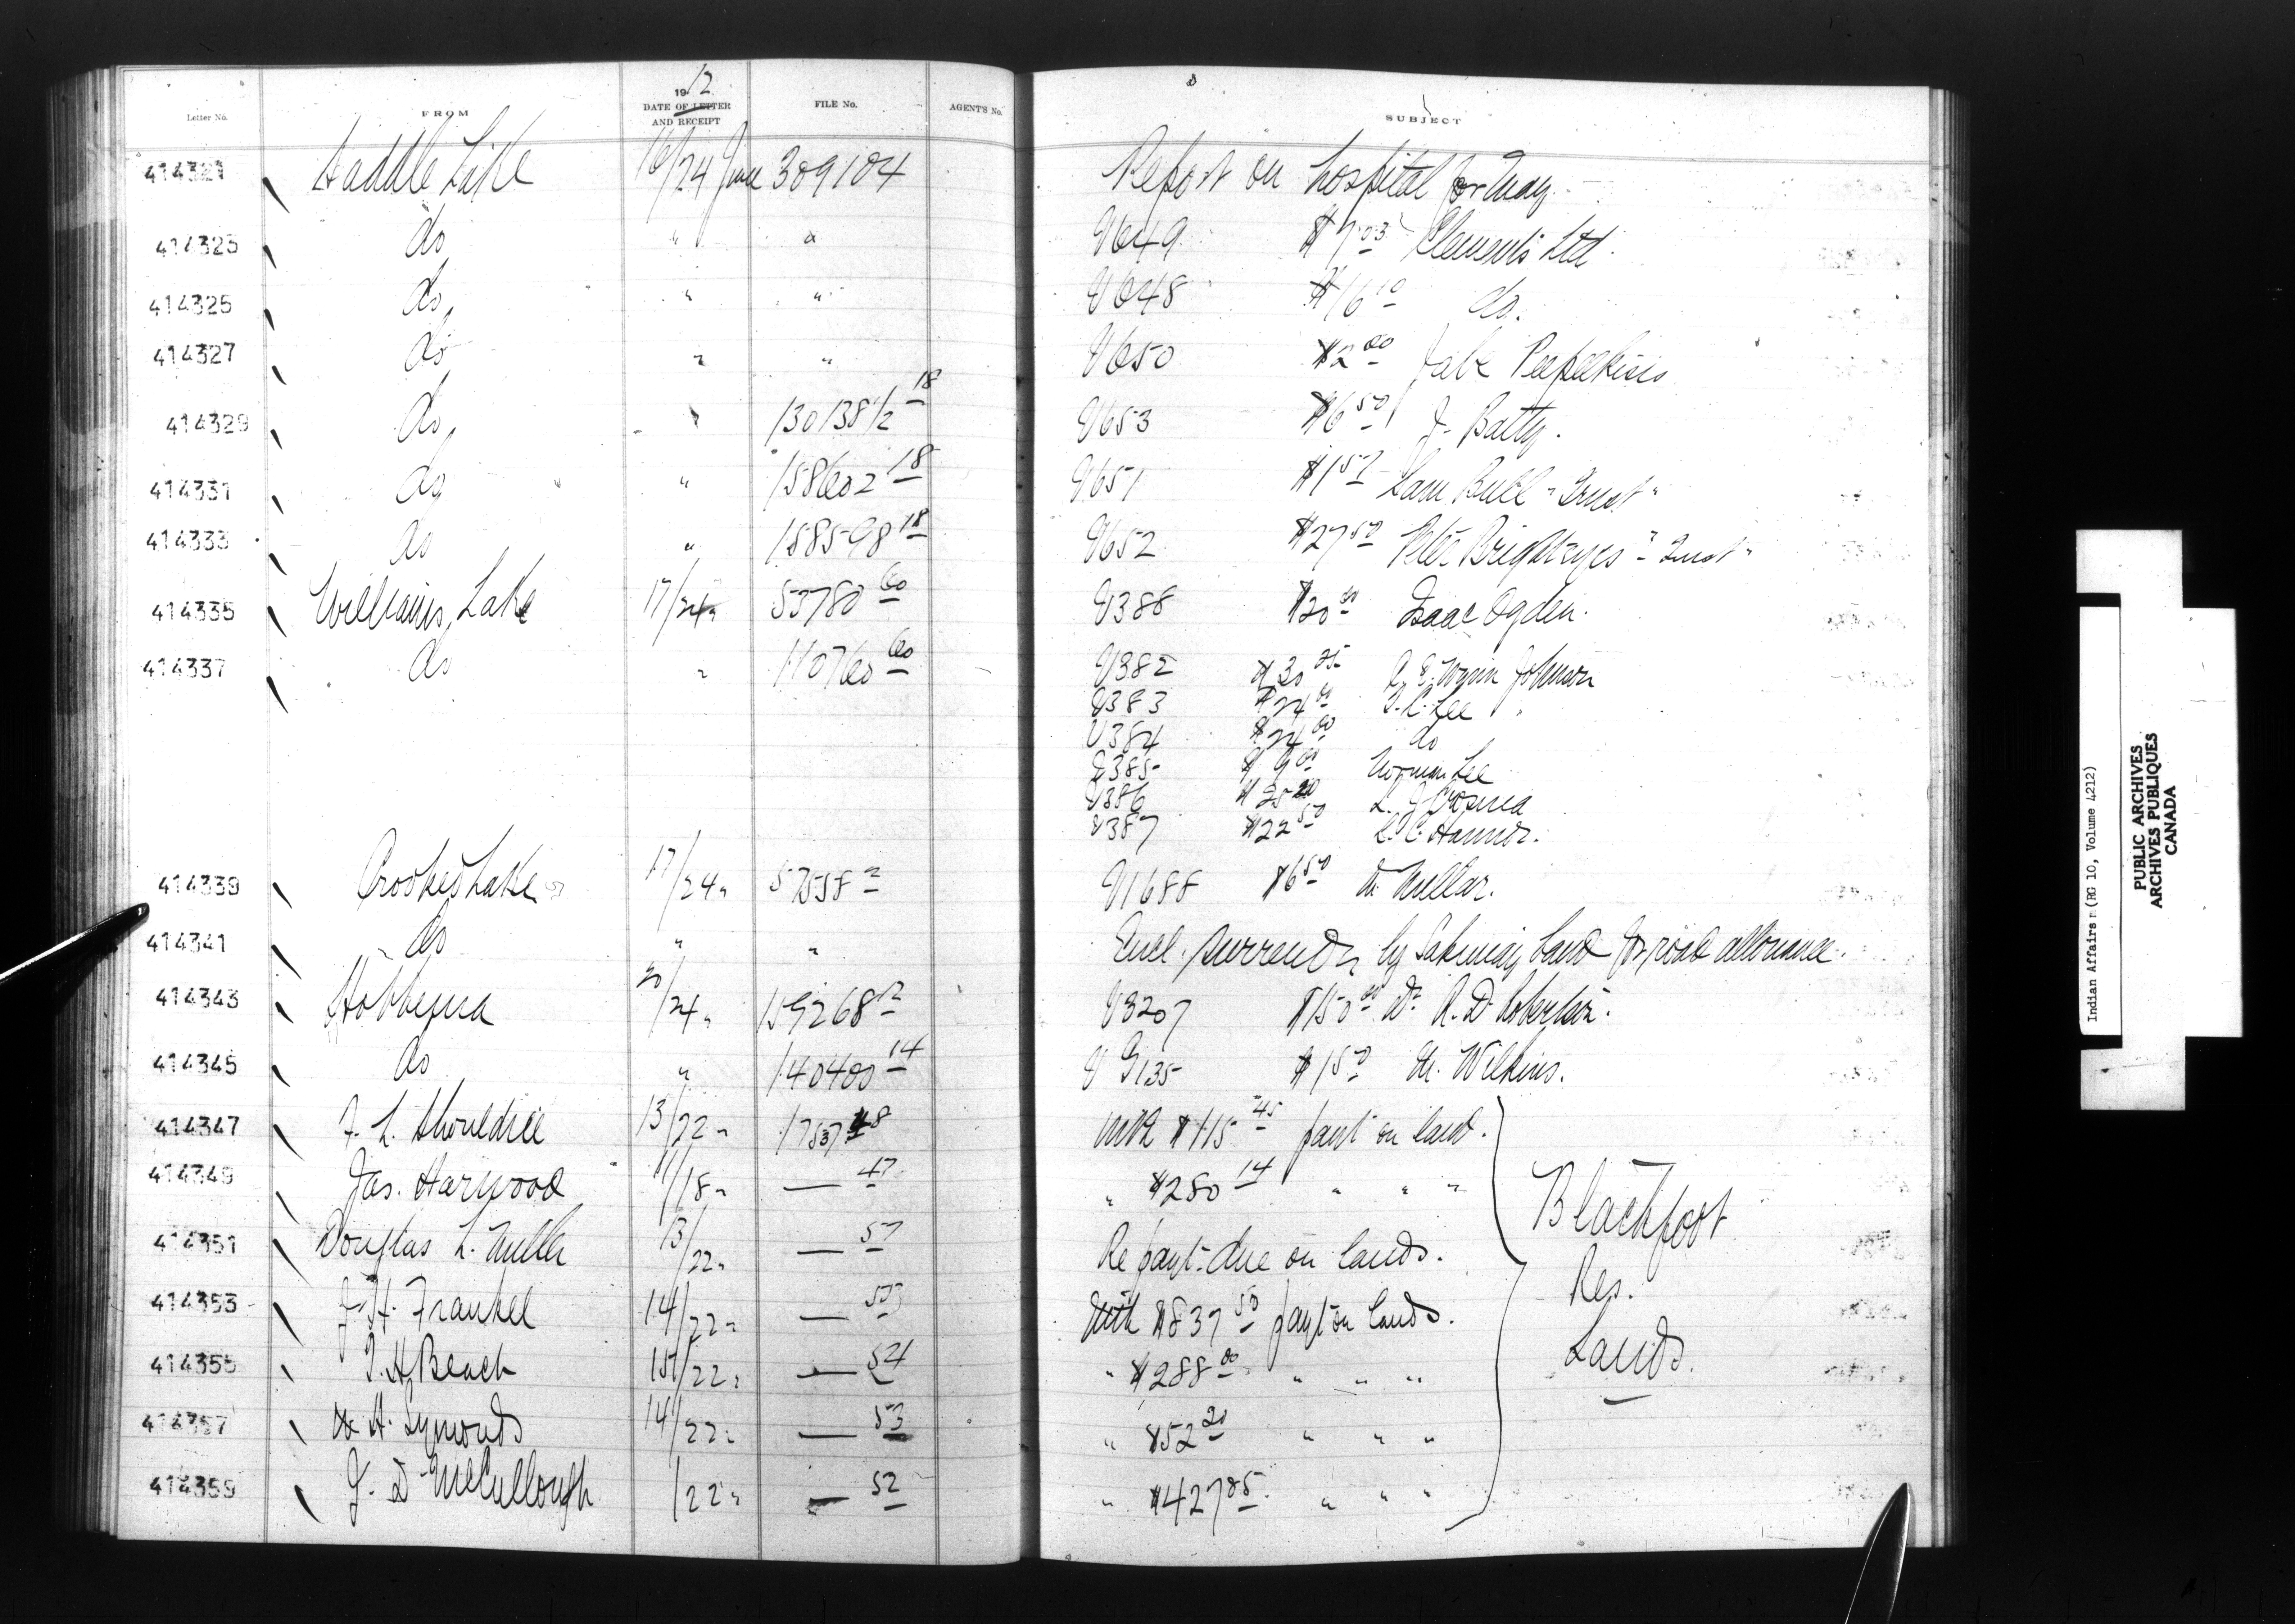 Letter No. FROM 1912 DATE OF LETTER AND RECEIPT FILE No. AGENT'S No. SUBJECT
414321 Saddle Lake 16/24 June 309104 Report on hospital for May
414323 do " " V649 $7.03 Clements Ltd.
414325 do " " V648 $16 10 do.
414327 do " " V650 $2 00 Jabe
414329 do " 130138 1/2 18 V653 $6 50 J. Batty.
414331 do " 158602 18 V651 Sam Bull "Trust"
414333 do " 158598 18 V652 $27 50 Peter Brighteyes "Trust"
414335 Williams Lake 17/24 " 53780 60 V388 $20 00 Isaac Ogden.
414337 do " 110760 60 V382 $30 25 Wynn Johnson
V383 $24 00 Lee
V384 $24 00 do
V385 $9 00 Norman Lee
V386
V387 $22 50
414339 Crooked Lake 17/24 " V1688 $6 50
414341 do " " Encl. surrender by Sakimay band for road allowance.
414343 Hobbema 20/24 " 159268 V3207 $150 00 Dr. R. D. Robertson.
414345 do " 140400 14 V G135 $1 50 Wilkins.
414347 F. L. Shouldice 13/22 " with $115 45 payt on land.
414349 Jas. Harwood 11/18 " — 47 " $280 14 " " "
414351 Douglas L. 13/22 " — 57 Re payt. due on lands.
414353 Frankel 14/22 " — With $837 50 payt on lands.
414355 Beach 15/22 " — 54 " $288 00 " " "
414357 Symonds 14/22 " — 53 " $52 20 " " "
414359 J. D. McCullough /22 " — 52 " $427 85 " " "
Blackfoot
Res.
Lands.
Indian Affairs (RG 10, Volume 4212)
PUBLIC ARCHIVES
ARCHIVES PUBLIQUES
CANADA